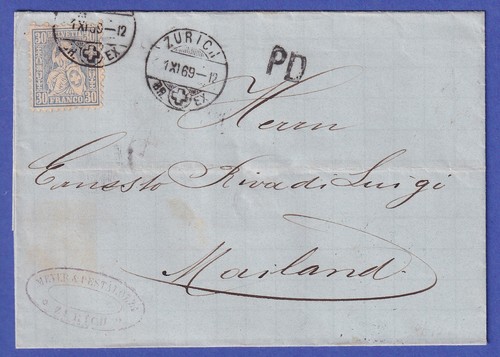 30 30
FRANCO
1 XI 69–12
BR. EX.
ZÜRICH
1 XI 69–12
BR. EX.
PD
Herrn
Ernesto Riva di Luigi
Mailand.
MEYER & PESTALOZZI
ZÜRICH